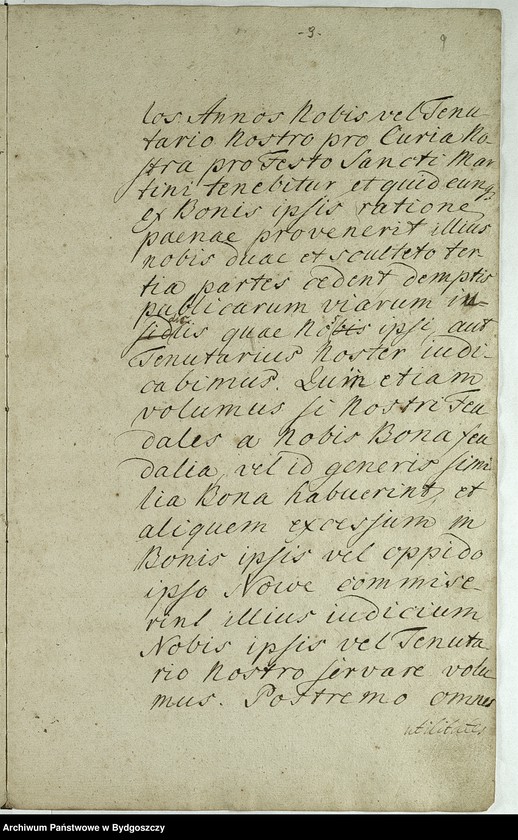 -9-
9
los Annos Nobis vel Tenu-
tario Nostro pro Curia No-
stra pro Festo Sancti Mar-
tini tenebitur et quidcunq
ex Bonis ipsis ratione
paenae provenerit illius
nobis duae et sculteto ter-
tia partes cedent demptis
publicarum viarum in-
sidiis quae Nobis ipsi aut
Tenutarius Noster iudi-
cabimus. Quin etiam
volumus si Nostri Feu-
dales a Nobis Bona feu-
dalia, vel id generis simi-
lia Bona habuerint, et
aliquem excessum in
Bonis ipsis vel oppido
ipso Nowe commise-
rint illius iudicium
Nobis ipsis vel Tenuta-
rio Nostro servare volu-
mus. Postremo omnes
utilitates
Archiwum Państwowe w Bydgoszczy